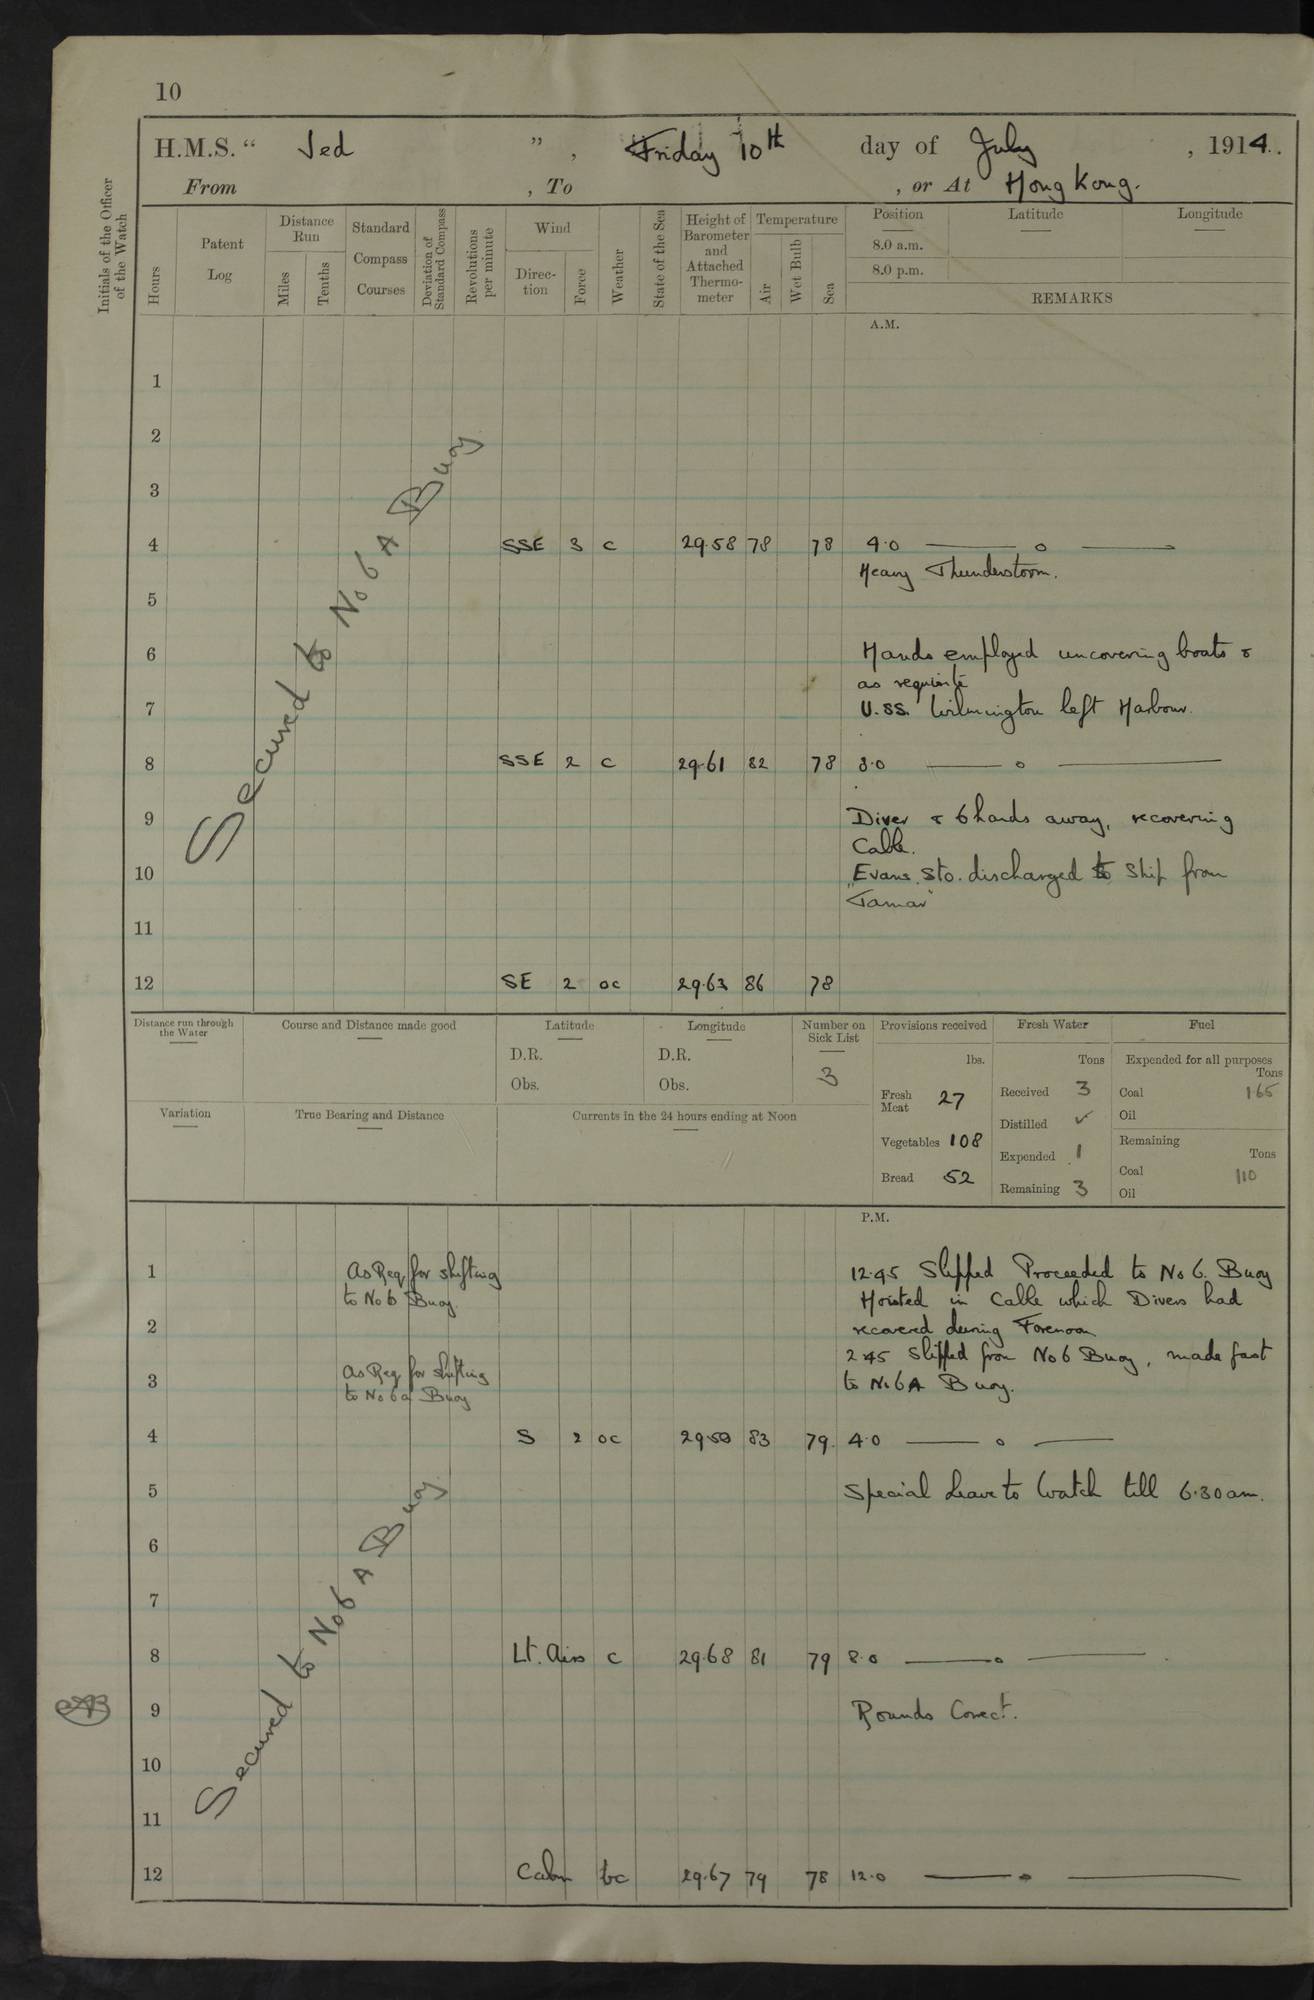 10
H.M.S. " Jed ", Friday 10th day of July, 1914.
From , To , or At Hong Kong.
Initials of the Officer of the Watch
Hours
Patent Log
Distance Run
Miles
Tenths
Standard Compass Courses
Deviation of Standard Compass
Revolutions per minute
Wind
Direction
Force
Weather
State of the Sea
Height of Barometer and Attached Thermometer
Temperature
Air
Wet Bulb
Sea
Position Latitude Longitude
8.0 a.m.
8.0 p.m.
REMARKS
A.M.
Secured to No 6 A Buoy
1
2
3
4 SSE 3 c 29.58 78 78 4.0 —— o ——
Heavy Thunderstorm.
5
6 Hands employed uncovering boats &
as requisite
7 U.SS. Wilmington left Harbour.
8 SSE 2 c 29.61 82 78 8.0 —— o ——
9 Diver & 6 hands away, recovering
Cable.
10 Evans Sto. discharged to Ship from
"Tamar"
11
12 SE 2 oc 29.63 86 78
Distance run through the Water
Course and Distance made good
Latitude
D.R.
Obs.
Longitude
D.R.
Obs.
Number on Sick List
3
Provisions received
lbs.
Fresh Meat 27
Vegetables 108
Bread 52
Fresh Water
Tons
Received 3
Distilled ✓
Expended 1
Remaining 3
Fuel
Expended for all purposes
Tons
Coal 1.65
Oil
Remaining
Tons
Coal 110
Oil
Variation
True Bearing and Distance
Currents in the 24 hours ending at Noon
P.M.
1 As Req for shifting 12.45 Slipped Proceeded to No 6. Buoy
to No 6 Buoy. Hoisted in Cable which Divers had
2 recovered during Forenoon
2.45 Slipped from No 6 Buoy, made fast
As Req for shifting
3 to No 6A Buoy.
to No 6a Buoy
4 S 2 oc 83 79 4.0 —— o ——
5 Special Leave to Watch till 6.30 am.
Secured to No 6 A Buoy
6
7
8 Lt. Airs c 29.68 81 79 8.0 —— o ——
9 Rounds Correct.
10
11
12 Calm bc 29.67 79 78 12.0 —— o ——